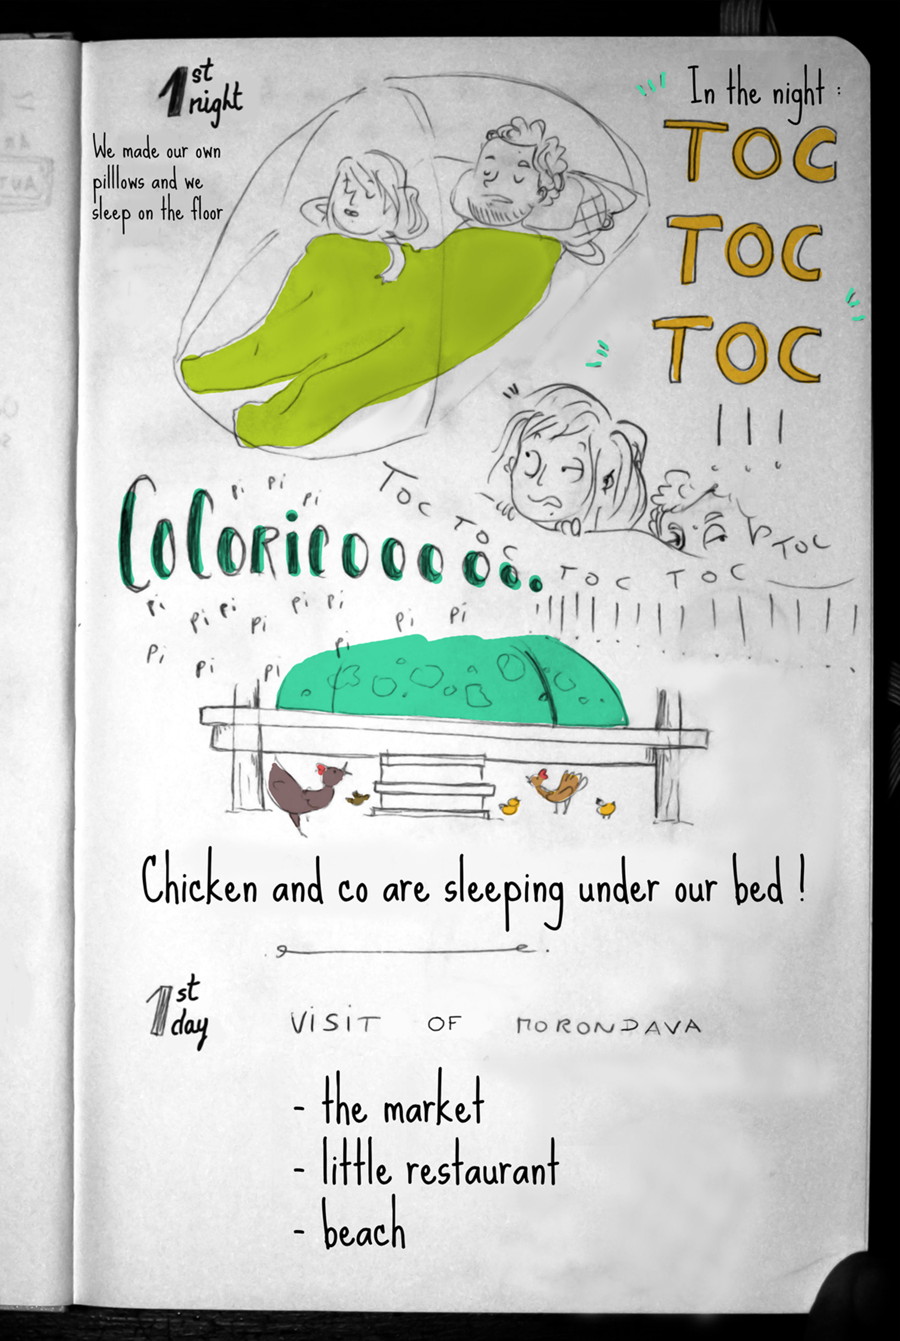 1st
night
We made our own
pilllows and we
sleep on the floor
In the night :
TOC
TOC
TOC
!!!
TOC TOC
TOC
TOC TOC
COCORICOOOOO...
pi pi pi
pi pi pi pi pi pi pi pi
pi pi pi pi
Chicken and co are sleeping under our bed !
1st
day
VISIT OF MORONDAVA
- the market
- little restaurant
- beach